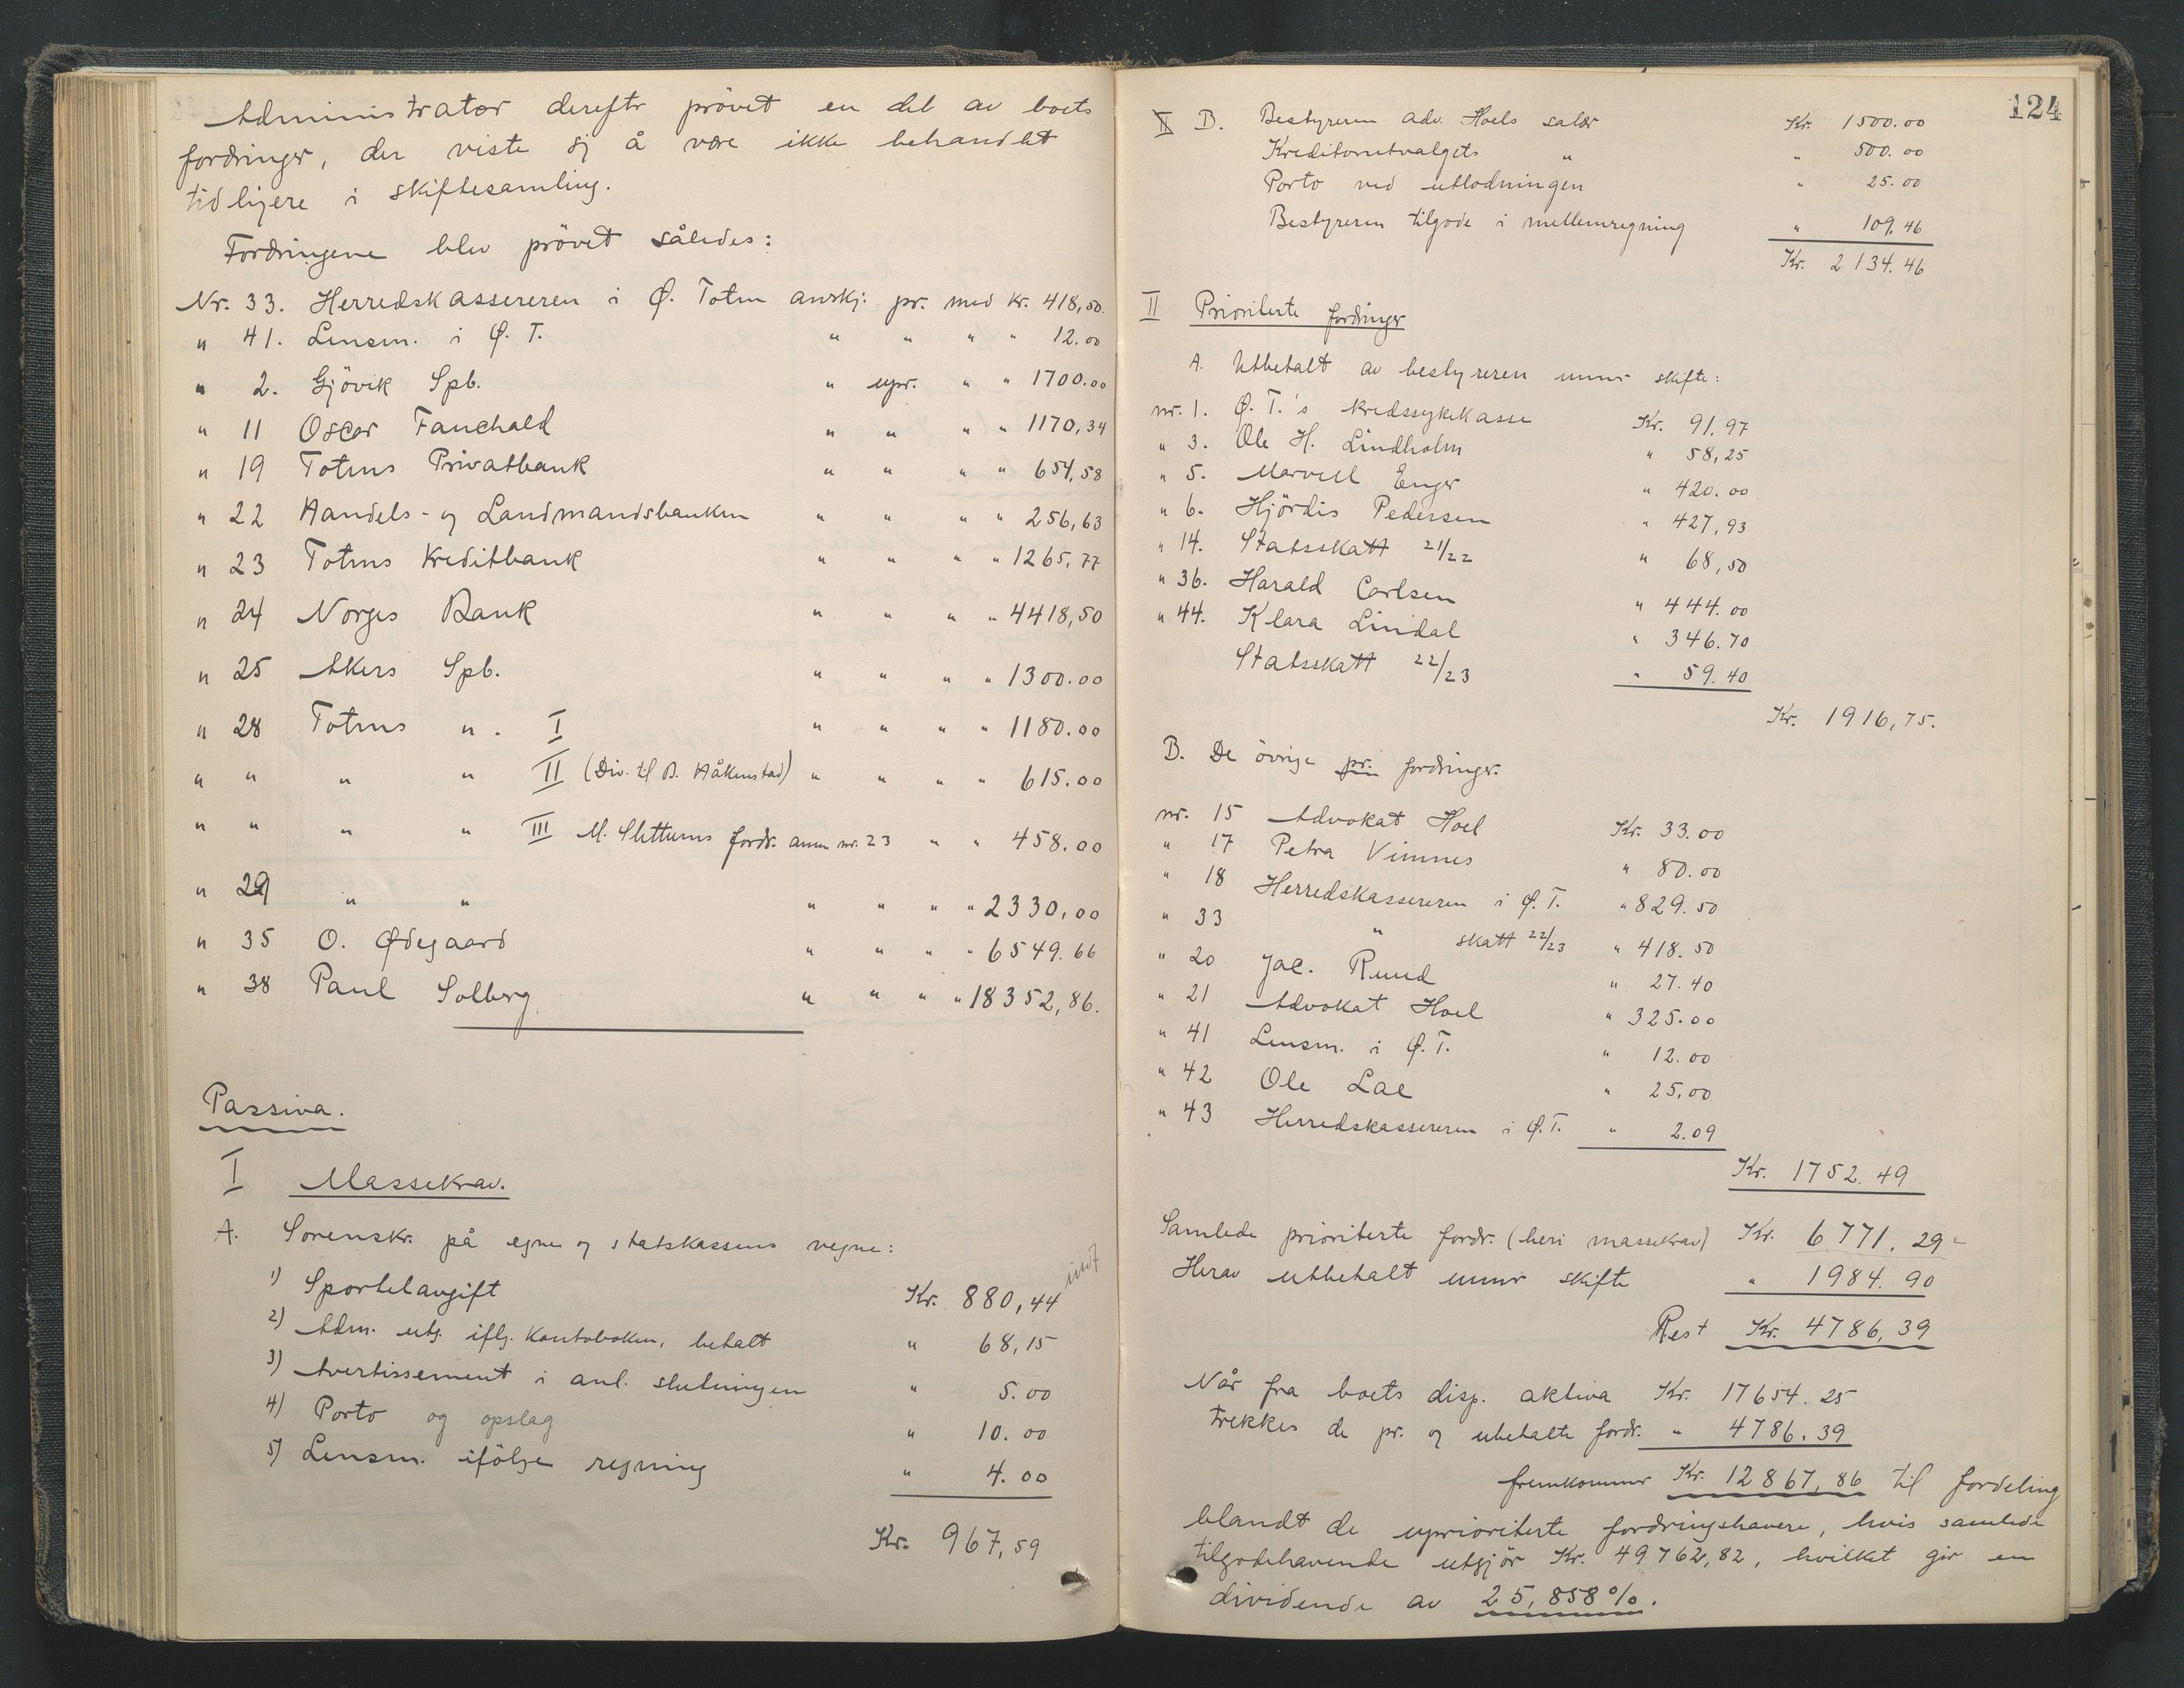 Administrator dereftr prövet en del av boets
fordringer, der viste sj å være ikke behandlet
tidligere i skiftesamling.
Fordringene blev prövet således:
Nr. 33. Herredskassereren i Ø. Toten anrkj: pr. med kr. 418,50.
" 41. Lensm. i Ø. T. " " " " 12.00
" 2. Gjövik Spb. " upr. " " 1700.00
" 11 Oscar Fauchald " " " " 1170,34
" 19 Totens Privatbank " " " " 654,58
" 22 Handels- og Landmandsbanken " " " " 256,63
" 23 Totens Kreditbank " " " " 1265,77
" 24 Norges Bank " " " " 4418,50
" 25 Akers Spb. " " " " 1300.00
" 28 Totens " . I " " " " 1180.00
" " " " II (Div. til B. Håkenstad) " " " " 615.00
" " " " III M. Slettums fordr. anm nr. 23 " " 458.00
" 29 " " " " " " 2330,00
" 35 O. Ødegaard " " " " 6549.66
" 38 Paul Solberg " " " " 18352,86.
Passiva.
I Massekrav.
A. Sorenskr. på egne og statskassens vegne:
1) Sportelavgift Kr. 880,44
2) Adm. utg. iflg. Kontoboken, betalt " 68,15
3) Avertissement i anl. slutningen " 5.00
4) Porto og opslag " 10.00
5) Lensm. ifölge regning " 4.00
Kr. 967,59
124
B. Bestyreren adv. Hoels salær Kr. 1500.00
Kreditorutvalgets " " 500.00
Porto ved utlodningen " 25.00
Bestyreren tilgode i mellemregning " 109.46
Kr. 2134.46
II Prioriterte fordringer
A. Utbetalt av bestyreren under skifte:
nr. 1. Ø. T.'s kredssykekasse Kr. 91.97
" 3. Ole H. Lindholm " 58,25
" 5. Marvell Enger " 420.00
" 6. Hjördis Pedersen " 427,93
" 14. Statsskatt 21/22 " 68,50
" 36. Harald Carlsen " 444.00
" 44. Klara Lindal " 346.70
Statsskatt 22/23 " 59.40
Kr. 1916,75.
B. De övrige pr. fordringer.
nr. 15 Advokat Hoel Kr. 33.00
" 17 Petra Vimnes " 80.00
" 18 Herredskassereren i Ø. T. " 829.50
" 33 " skatt 22/23 " 418.50
" 20 Jac. Ruud " 27.40
" 21 Advokat Hoel " 325.00
" 41 Lensm. i Ø. T. " 12.00
" 42 Ole Lae " 25,00
" 43 Herredskassereren i Ø.T. " 2.09
Kr. 1752.49
Samlede prioriterte fordr. (heri massekrav) Kr. 6771.29
Herav utbetalt under skifte " 1984.90
Rest Kr. 4786,39
Når fra boets disp. aktiva Kr. 17654.25
trekkes de pr. og ubetalte fordr. " 4786.39
fremkommer Kr. 12867,86 til fordeling
blandt de uprioriterte fordringshavere, hvis samlede
tilgodehavende utgjör Kr. 49762,82, hvilket gir en
dividende av 25,858%.